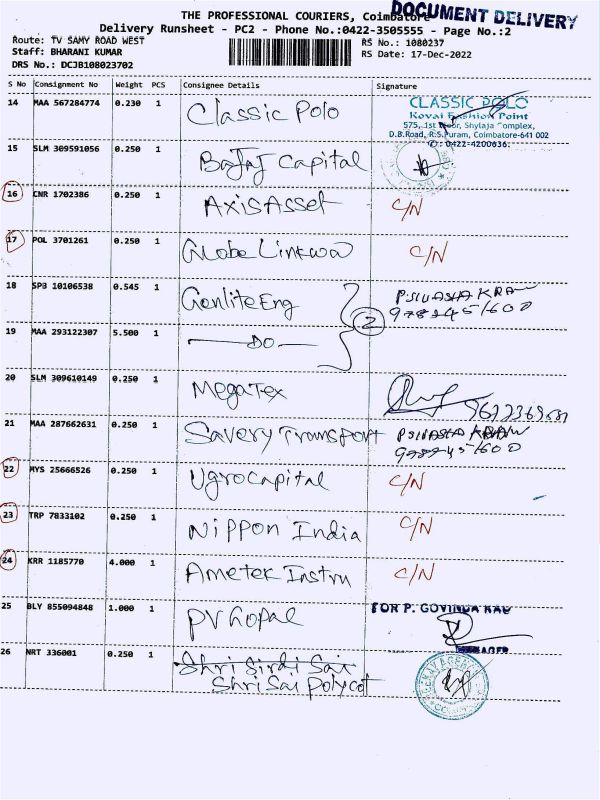 THE PROFESSIONAL COURIERS, Coimbatore
DOCUMENT DELIVERY
Delivery Runsheet - PC2 - Phone No.:0422-3505555 - Page No.:2
Route: TV SAMY ROAD WEST
RS No.: 1080237
Staff: BHARANI KUMAR
RS Date: 17-Dec-2022
DRS No.: DCJB108023702
S No Consignment No Weight PCS Consignee Details Signature
14 MAA 567284774 0.230 1 Classic Polo
CLASSIC POLO
Kovai Fashion Point
575, 1st Floor, Shylaja Complex,
D.B.Road, R.S.Puram, Coimbatore-641 002
✆: 0422-4200636.
15 SLM 309591056 0.250 1 Bajaj Capital
16 CNR 1702386 0.250 1 Axis Asset C/N
17 POL 3701261 0.250 1 Globe Linkwa C/N
18 SPB 10106538 0.545 1 Genlite Eng
2
19 MAA 293122307 5.500 1 DO
20 SLM 309610149 0.250 1 MegaTex
21 MAA 287662631 0.250 1 Savery Transport
22 MYS 25666526 0.250 1 Ugro Capital C/N
23 TRP 7833102 0.250 1 Nippon India C/N
24 KRR 1185770 4.000 1 Ametek Instru C/N
25 BLY 855094848 1.000 1 PV Gopal
FOR P. GOVINDA RAO
MANAGER
26 NRT 336001 0.250 1 Shri Sirdi Sai
Shri Sai Polycot